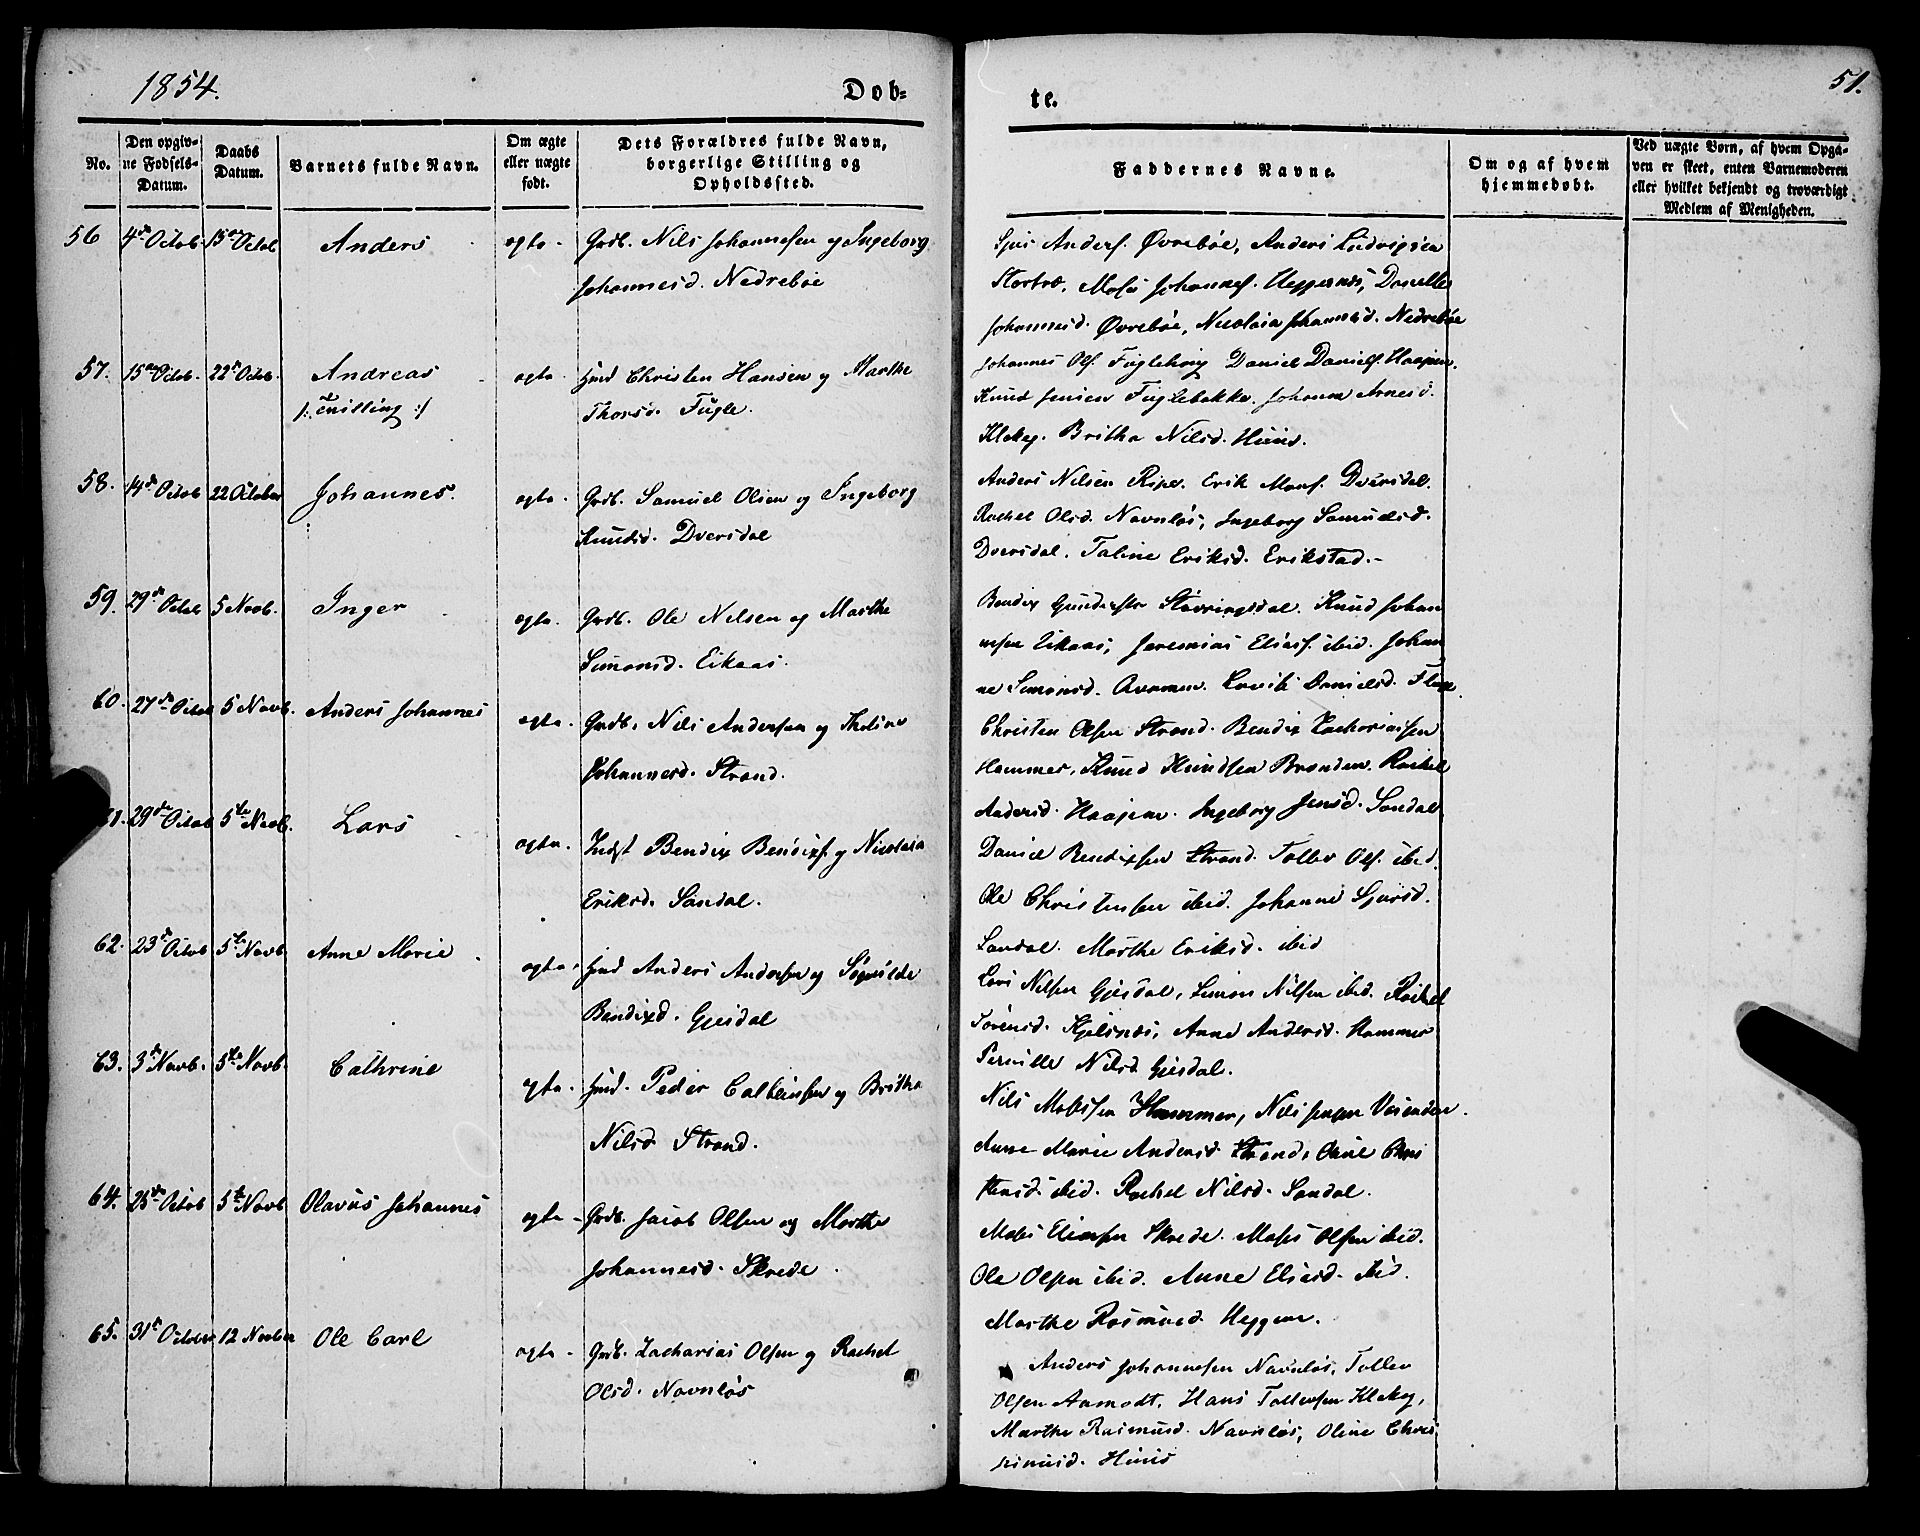 1854.
Dob-
te.
51.
No.
Den opgiv-
ne Fødsels-
Datum.
Daabs
Datum.
Barnets fulde Navn.
Om ægte
eller uægte
født.
Dets Forældres fulde Navn,
borgerlige Stilling og
Opholdssted.
Faddernes Navne.
Om og af hvem
hjemmedøbt.
Ved uægte Børn, af hvem Opga-
ven er skeet, enten Barnemoderen
eller hvilket bekjendt og troværdigt
Medlem af Menigheden.
56 4de Octob. 15de Octob Anders ægte. Grdb. Nils Johannesen og Ingeborg
Johannesd. Nedrebøe
Sjur Anders. Øvrebøe, Anders Ludvigsen
Moses Johannes. Heggenæs,
Johannesd. Øvrebøe, Nicolaia Johannesd. Nedrebøe
57. 15de Octob. 22de Octob. Andreas ægte Hmd Christen Hansen og Marthe
/: Tvilling :/ Thorsd. Fugle.
Johannes Ols. Daniel Daniels. Haajem.
Knud Jensen Fuglebakke. Johanna Arnesd.
Klakeg. Britha Nilsd. Huus.
58. 14de Octob 22 October Johannes. ægte. Grdb. Samuel Olsen og Ingeborg
Knudsd. Dvergsdal
Anders Nilsen Ripe. Erik Mons. Dvergsdal.
Rachel Olsd. Navnløs, Ingeborg Samuelsd.
Dvergsdal. Taline Eriksd. Erikstad.-
59. 29de Octob 5 Novb. Inger ægte. Grdb. Ole Nilsen og Marthe
Simonsd. Eikaas.
Bendix Støvringsdal. Knud Johan
nesen Eikaas, Jeremias Elias. ibid. Johan
ne Simonsd. Danielsd.
60. 27de Octob 5 Novb. Anders Johannes ægte. Grdb. Nils Andersen og Tholine
Johannesd. Strand.
Christen Olsen Strand. Bendix Zachariassen
Hammer, Knud Knudsen Branden. Rachel
Andersd. Haajem. Ingeborg Jensd. Sandal
61. 29de Octob 5te Novb. Lars ægte. Indst Bendix Bendixs. og Nicolaia
Eriksd. Sandal.
Daniel Bendixsen Strand. Tollev Ols. ibid.
Ole Christensen ibid. Johanne Sjursd.
Sandal. Marthe Eriksd. ibid
62. 23de Octob 5te Novb Anne Marie ægte. Hmd Anders Andersen og Søgnilde
Bendixd. Gjesdal
Lars Nilsen Gjesdal, Simon Nilsen ibid. Rachel
Sørensd. Kjelsnæs, Anne Andersd. Hammer
Pernille Nilsd Gjesdal.
63. 3de Novb. 5te Novb. Cathrine ægte. Hmd. Peder og Britha
Nilsd Strand.
Nils Mosessen Hammer, Nils Jensen
Anne Marie Andersd Strand, Oline Chri
stensd. ibid. Rachel Nilsd. Sandal.
64. 25de Octob 5te Novb Olavus Johannes ægte Grdb. Jacob Olsen og Marthe
Johannesd. Skrede.
Moses Eliassen Skrede. Moses Olsen ibid.
Ole Olsen ibid. Anne Eliasd. ibid.
Marthe Rasmusd. Heggem.
65. 31te October 12 Novber Ole Carl ægte Grdb. Zacharias Olsen og Rachel
Olsd. Navnløs
Anders Johannesen Navnløs, Tollev
Olsen Aamodt, Hans Tollevsen Klakeg,
Marthe Rasmusd. Navnløs, Oline Chris
Huus